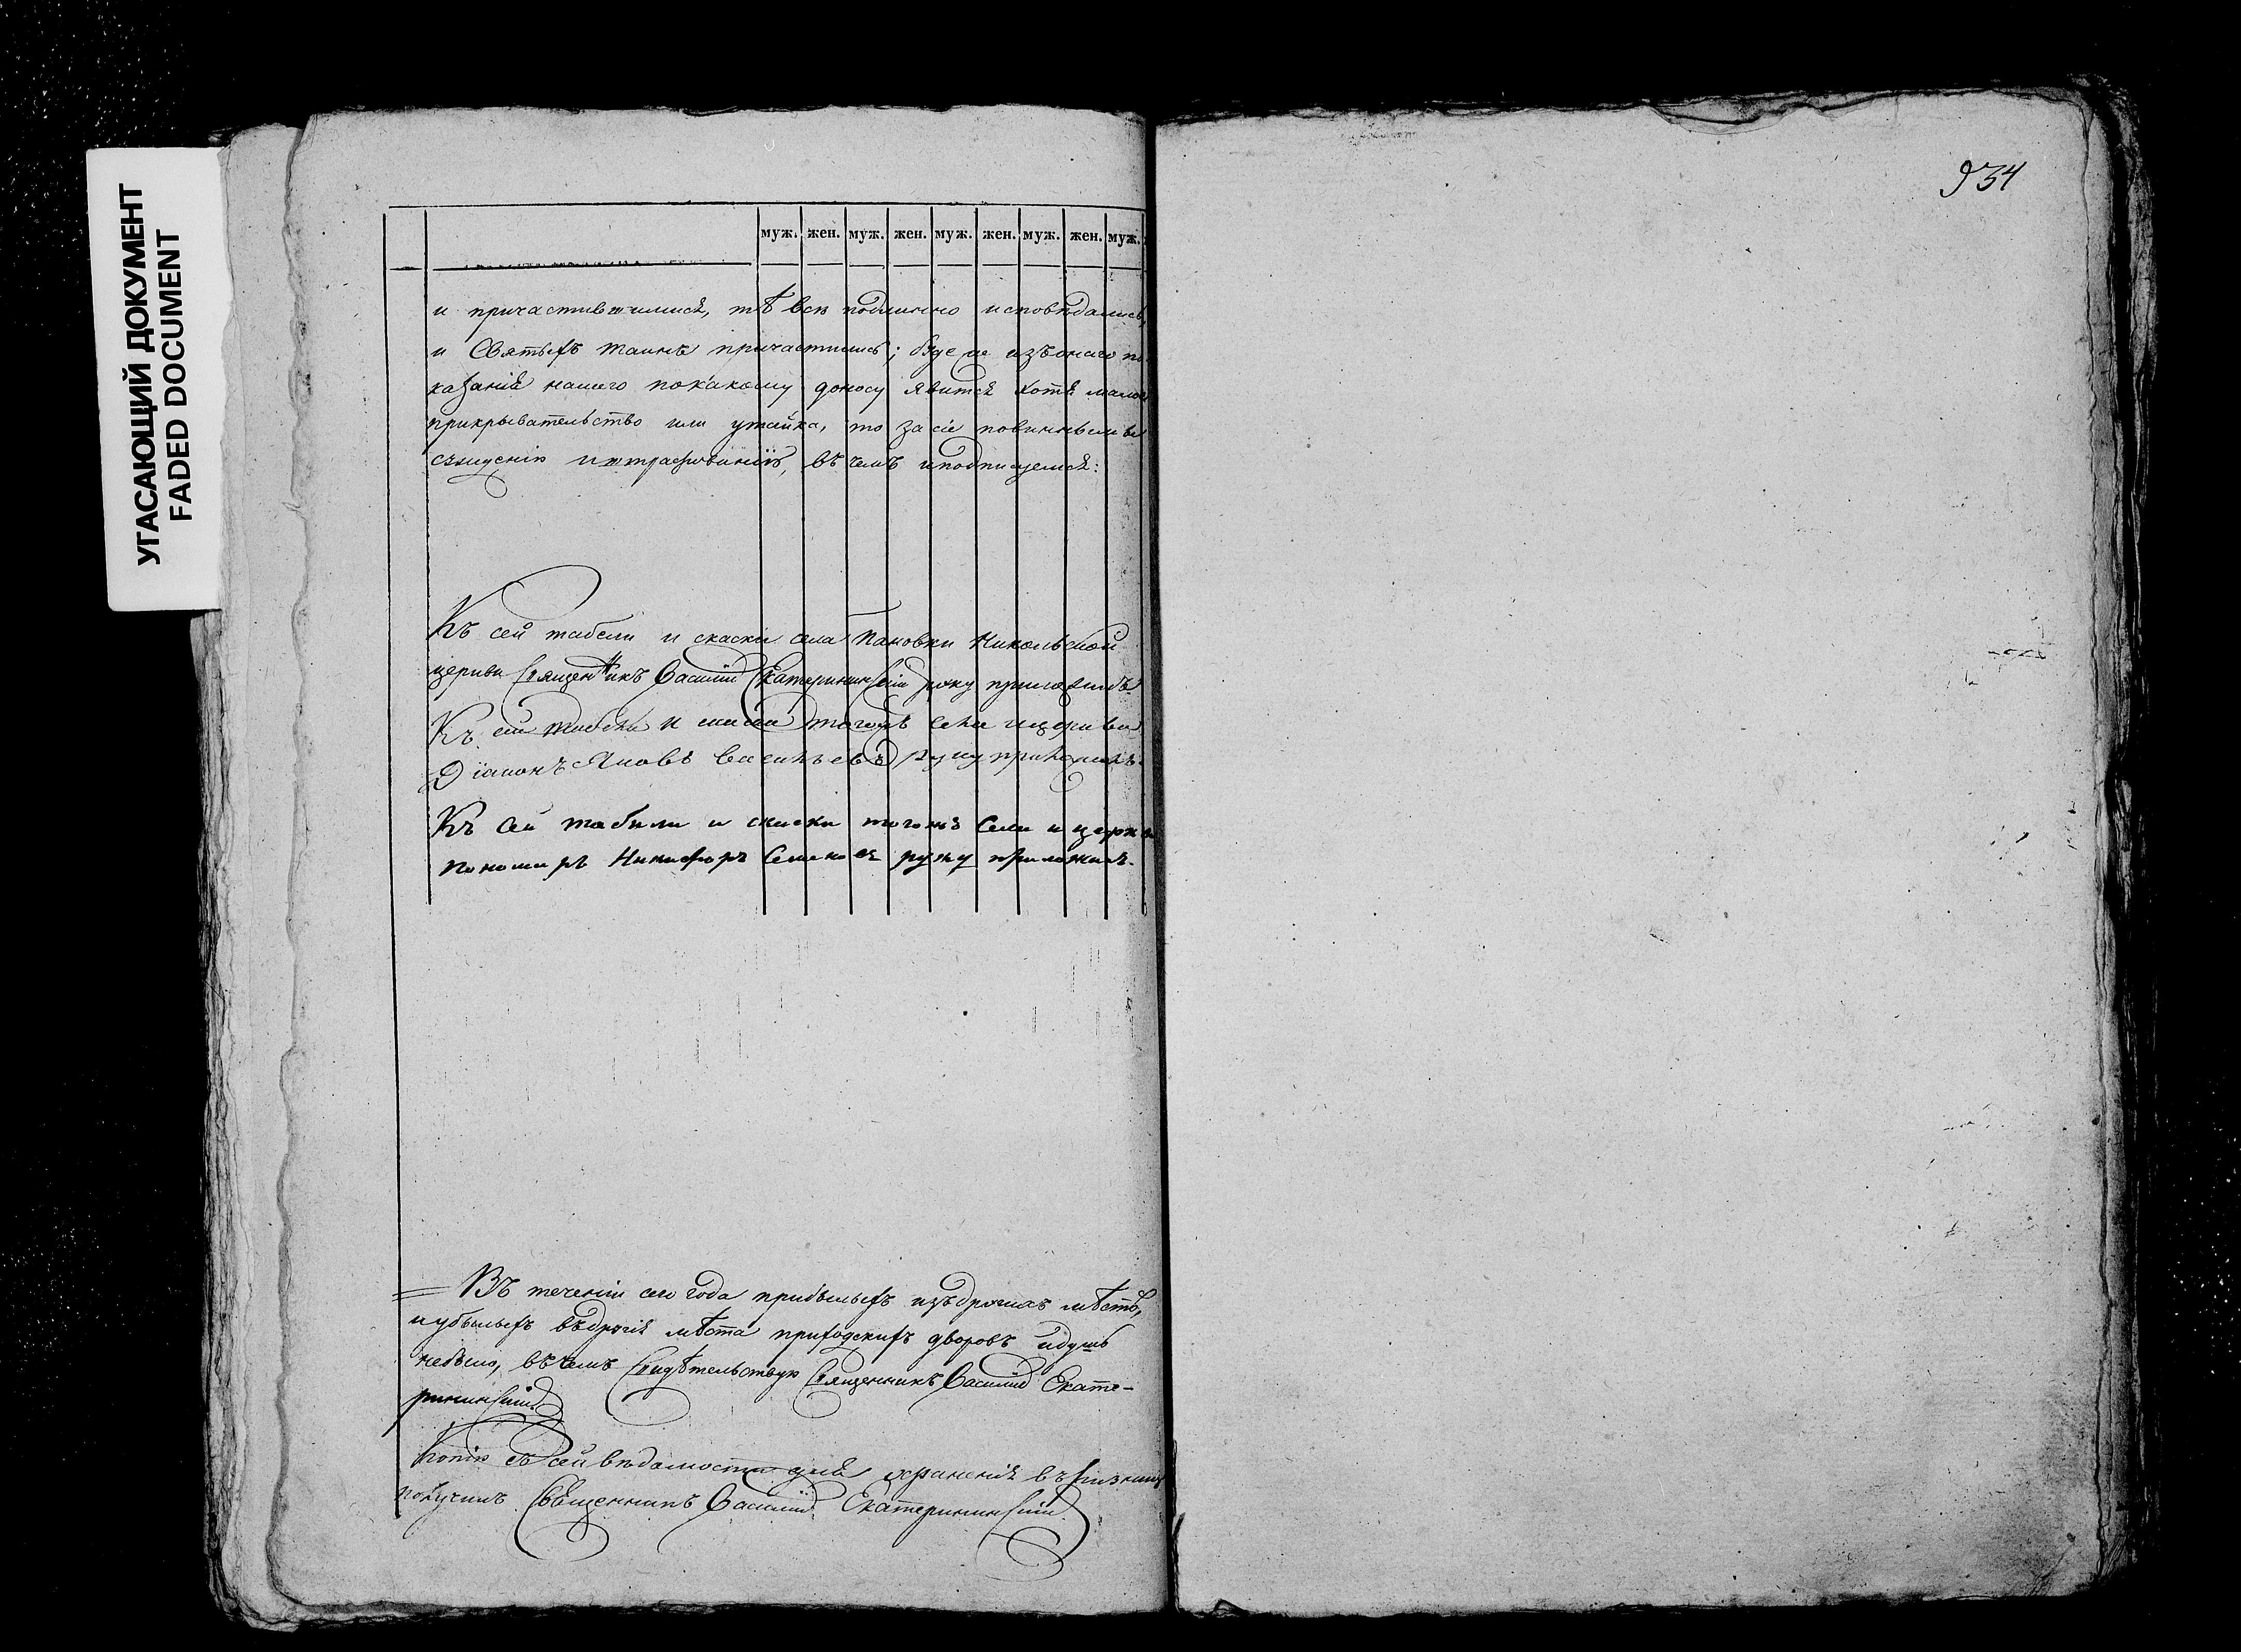 УГАСАЮЩИЙ ДОКУМЕНТ
FADED DOCUMENT
934
муж. жен. муж. жен. муж. жен. муж. жен. муж.
и причастившимися, тѣ всѣ подлинно исповѣдались,
и Святыхъ таинъ причастились; буде же изъ онаго по
казанія нашего по какому доносу явится хотя малое
прикрывательство или утайка, то за сіе повинны мы
сужденію и штрафованію, въ чемъ и подписуемся:
Къ сей табели и скаски села Пановки Никольской
церкви Священникъ Василій Екатерининскій руку приложилъ
Къ сей табели и скаски тогожъ села и церкви
Діаконъ Яковъ Васильевъ руку приложилъ.
Къ сей табели и скаски тогожъ села и церкви
Пономарь Никифоръ Семеновъ руку приложилъ.
Въ теченіи сего года прибылыхъ изъ другихъ мѣстъ,
и убылыхъ въ другія мѣста приходскихъ дворовъ и душъ
небыло, въ чемъ свидѣтельствую Священникъ Василій Екате-
рининскій
Копію съ сей вѣдомости для храненія въ ризницѣ
получилъ Священникъ Василій Екатерининскій